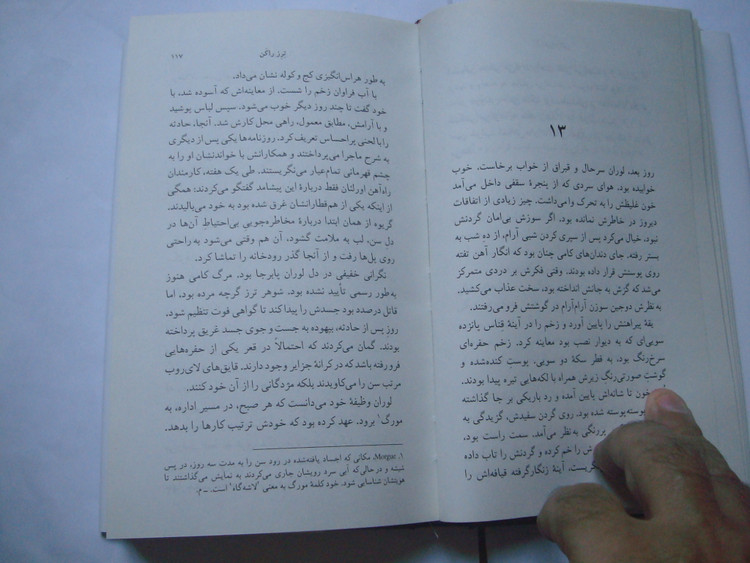 ۱۳
روز بعد، لوران سرحال و قبراق از خواب برخاست. خوب
خوابیده بود. هوای سردی که از پنجرهٔ سقفی داخل می‌آمد
خون غلیظش را به تحرک وامی‌داشت. چیز زیادی از اتفاقات
دیروز در خاطرش نمانده بود. اگر سوزش بی‌امان گردنش
نبود، خیال می‌کرد پس از سپری کردن شبی آرام، از ده شب به
بستر رفته. جای دندان‌های کامی چنان بود که انگار آهن تفته
روی پوستش قرار داده بودند. وقتی فکرش بر دردی متمرکز
می‌شد که گزش به جانش انداخته بود، سخت عذاب می‌کشید.
به نظرش دوجین سوزن آرام‌آرام در گوشتش فرو می‌رفتند.
یقهٔ پیراهنش را پایین آورد و زخم را در آینهٔ قناس پانزده
سویی‌ای که به دیوار نصب بود معاینه کرد. زخم حفره‌ای
سرخ‌رنگ بود، به قطر سکهٔ دو سویی. پوستِ کنده‌شده و
گوشتِ صورتی‌رنگِ زیرش همراه با لکه‌هایی تیره پیدا بودند.
خون تا شانه‌اش پایین آمده و رد باریکی بر جا گذاشته
پوسته‌پوسته شده بود. روی گردن سفیدش، گزیدگی به
پررنگی به نظر می‌آمد. سمت راست بود.
را خم کرده و گردنش را تاب داده
آینهٔ زنگارگرفته قیافه‌اش را
ترز راکن
۱۱۷
به طور هراس‌انگیزی کج و کوله نشان می‌داد.
با آب فراوان زخم را شست. از معاینه‌اش که آسوده شد، با
خود گفت تا چند روز دیگر خوب می‌شود. سپس لباس پوشید
و با آرامش، مطابق معمول، راهی محل کارش شد. آنجا، حادثه
را با لحنی پراحساس تعریف کرد. روزنامه‌ها یکی پس از دیگری
به شرح ماجرا می‌پرداختند و همکارانش با خواندنشان او را به
چشم قهرمانی تمام‌عیار می‌نگریستند. طی یک هفته، کارمندان
راه‌آهن اورلئان فقط دربارهٔ این پیشامد گفتگو می‌کردند: همگی
از اینکه یکی از هم‌قطارانشان غرق شده بود به خود می‌بالیدند.
گریوه از همان ابتدا دربارهٔ مخاطره‌جویی بی‌احتیاطِ آن‌ها در
دل سن، لب به ملامت گشود، آن هم وقتی می‌شود به راحتی
روی پل‌ها رفت و از آنجا گذر رودخانه را تماشا کرد.
نگرانی خفیفی در دل لوران پابرجا بود. مرگ کامی هنوز
به‌طور رسمی تأیید نشده بود. شوهر ترز گرچه مرده بود، اما
قاتل درصدد بود جسدش را پیدا کند تا گواهی فوت تنظیم شود.
روزِ پس از حادثه، بیهوده به جست و جوی جسد غریق پرداخته
بودند. گمان می‌کردند که احتمالاً در قعر یکی از حفره‌هایی
فرو رفته باشد که در کرانهٔ جزایر وجود دارند. قایق‌های لای‌روب
مرتب سن را می‌کاویدند بلکه مژدگانی را از آن خود کنند.
لوران وظیفهٔ خود می‌دانست که هر صبح، در مسیر اداره، به
مورگ¹ برود. عهد کرده بود که خودش ترتیب کارها را بدهد.
۱. Morgue، مکانی که اجساد یافته‌شده در رود سن را به مدت سه روز، در پس
شیشه و در حالی‌که آبی سرد رویشان جاری می‌کردند به نمایش می‌گذاشتند تا
هویتشان شناسایی شود. خود کلمهٔ مورگ به معنی ‘لاشه‌گاه’ است. ــ م.